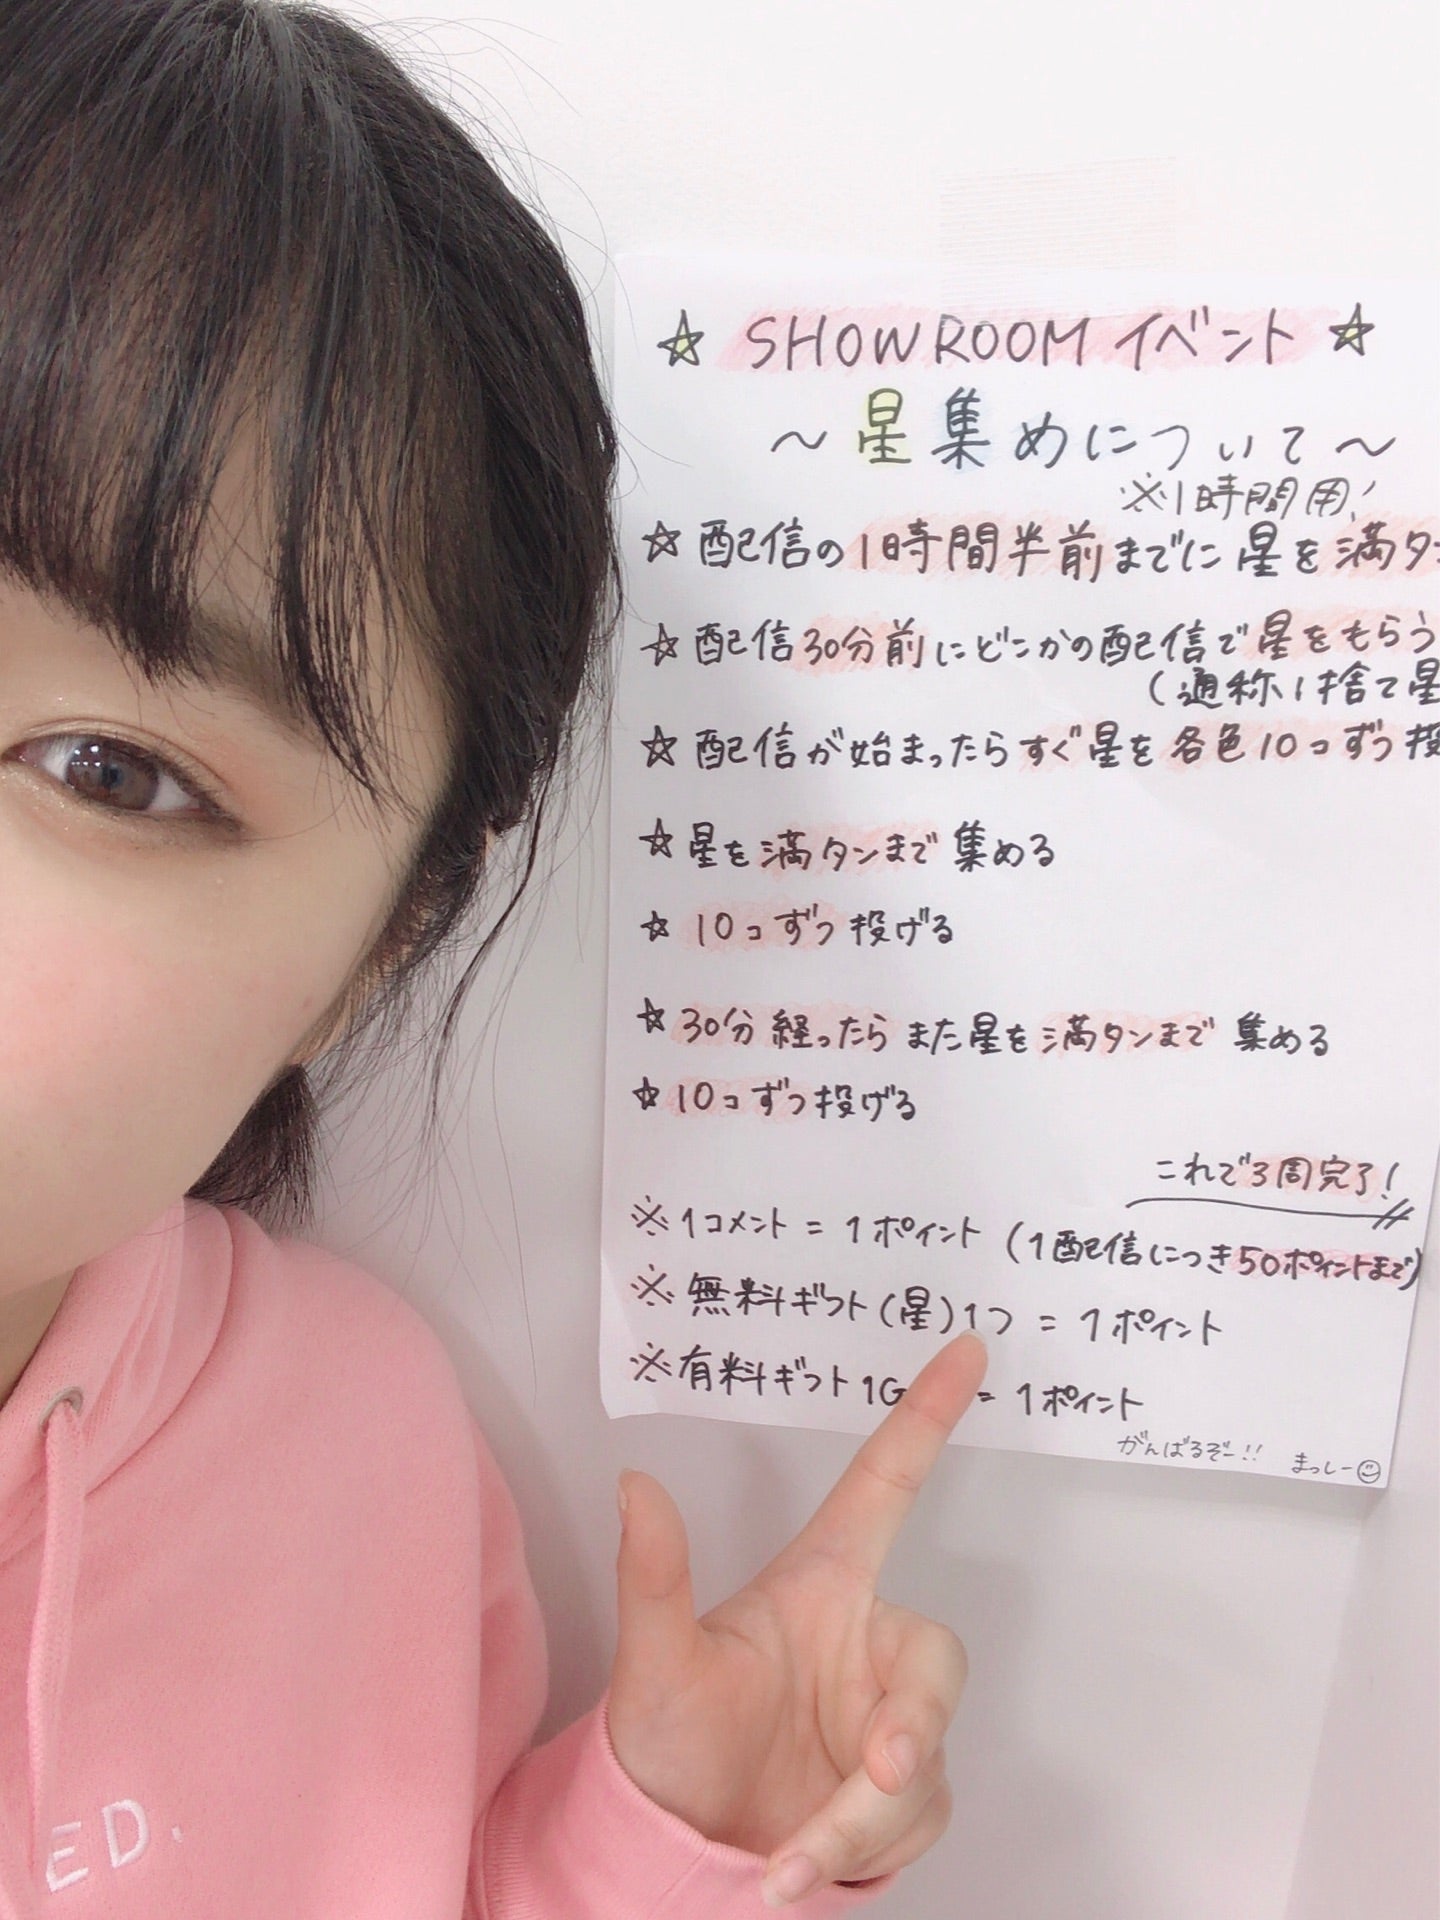 ☆ SHOWROOM イベント ☆
～星集めについて～
※1時間用!
☆配信の1時間半前までに星を満タ
☆配信30分前にどこかの配信で星をもらう
(通称、捨て星
☆配信が始まったらすぐ星を各色10コずつ投
☆星を満タンまで集める
☆10コずつ投げる
☆30分経ったらまた星を満タンまで集める
☆10コずつ投げる
これで3周完了!
※1コメント=1ポイント(1配信につき50ポイントまで)
※無料ギフト(星)1つ=1ポイント
※有料ギフト1G =1ポイント
がんばるぞー!! まっしー
ED.